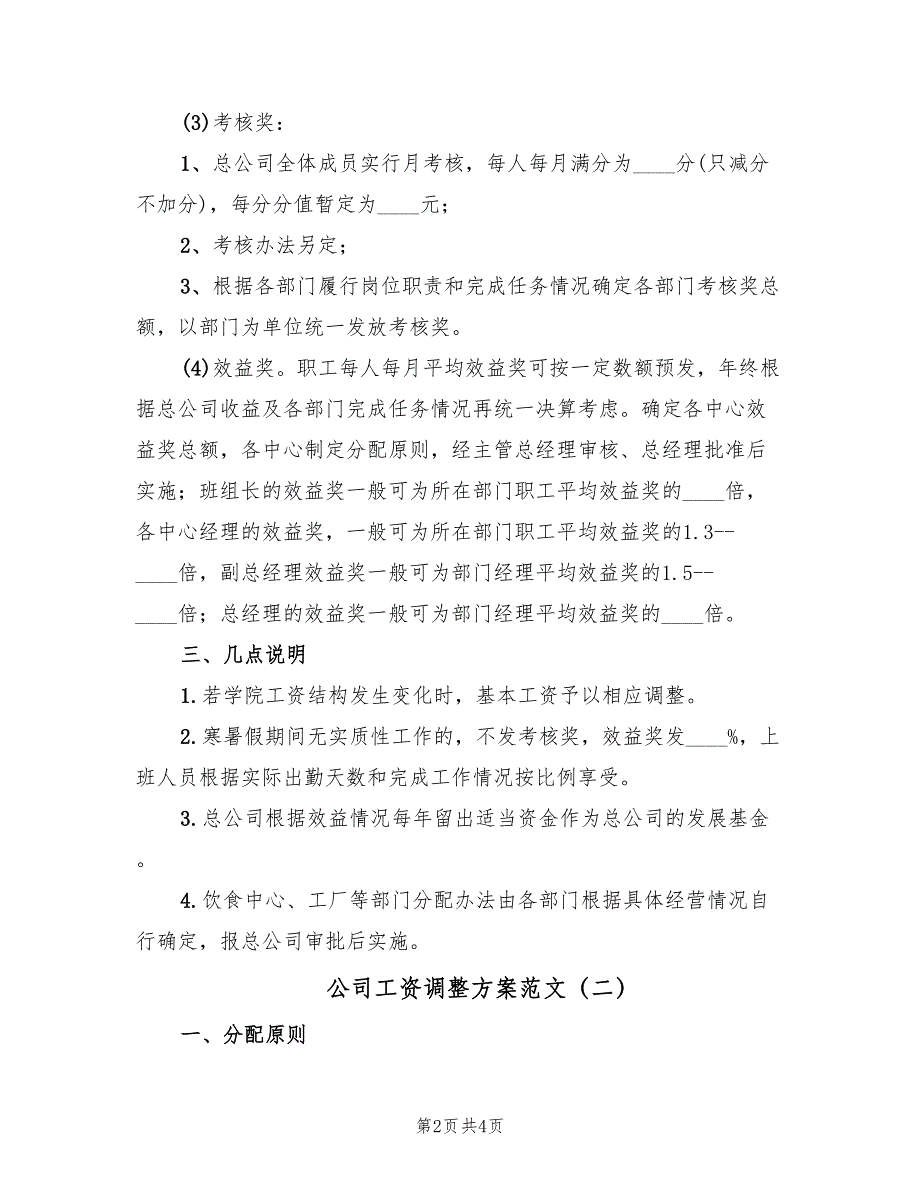 (3)考核奖：
1、总公司全体成员实行月考核，每人每月满分为____分(只减分
不加分)，每分分值暂定为____元；
2、考核办法另定；
3、根据各部门履行岗位职责和完成任务情况确定各部门考核奖总
额，以部门为单位统一发放考核奖。
(4)效益奖。职工每人每月平均效益奖可按一定数额预发，年终根
据总公司收益及各部门完成任务情况再统一决算考虑。确定各中心效
益奖总额，各中心制定分配原则，经主管总经理审核、总经理批准后
实施；班组长的效益奖一般可为所在部门职工平均效益奖的____倍，
各中心经理的效益奖，一般可为所在部门职工平均效益奖的1.3--
____倍，副总经理效益奖一般可为部门经理平均效益奖的1.5--
____倍；总经理的效益奖一般可为部门经理平均效益奖的____倍。
三、几点说明
1.若学院工资结构发生变化时，基本工资予以相应调整。
2.寒暑假期间无实质性工作的，不发考核奖，效益奖发____%，上
班人员根据实际出勤天数和完成工作情况按比例享受。
3.总公司根据效益情况每年留出适当资金作为总公司的发展基金
。
4.饮食中心、工厂等部门分配办法由各部门根据具体经营情况自
行确定，报总公司审批后实施。
公司工资调整方案范文（二）
一、分配原则
第2页共4页